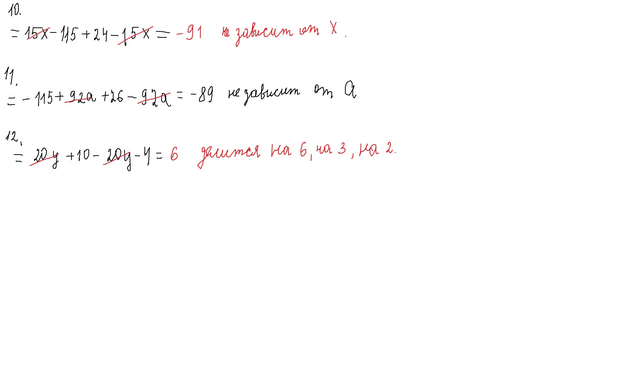 10.
= 15x - 115 + 24 - 15x = - 91 не зависит от X.
11.
= - 115 + 92a + 26 - 92a = - 89 не зависит от a
12.
= 20y + 10 - 20y - 4 = 6 делится на 6, на 3, на 2.